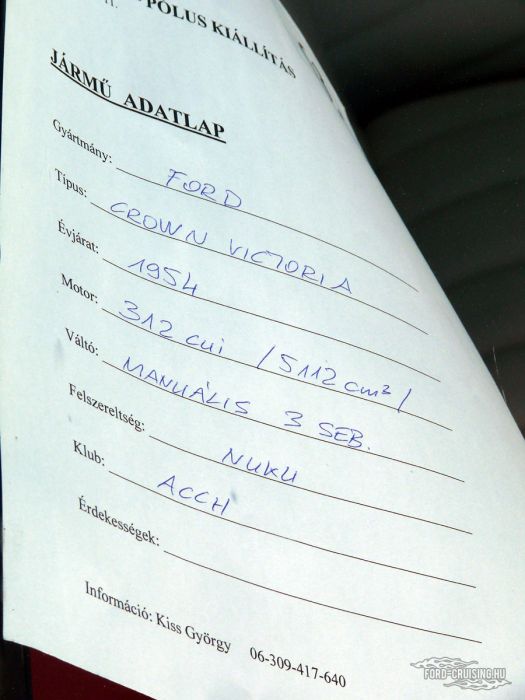 PÓLUS KIÁLLÍTÁS
II.
JÁRMŰ ADATLAP
Gyártmány: FORD
Típus: CROWN VICTORIA
Évjárat: 1954
Motor: 312 cui /5112 cm³/
Váltó: MANUÁLIS 3 SEB.
Felszereltség: NUKU
Klub: ACCH
Érdekességek:
Információ: Kiss György 06-309-417-640
FORD-CRUISING.HU